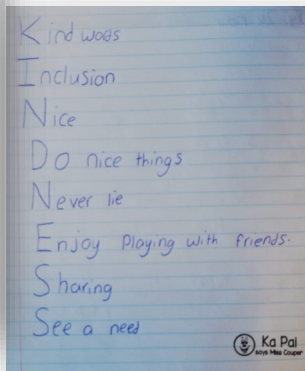 Kind wods
Inclusion
Nice
Do nice things
Never lie
Enjoy Playing with friends.
Sharing
See a need
Ka Pai
says Miss Couper